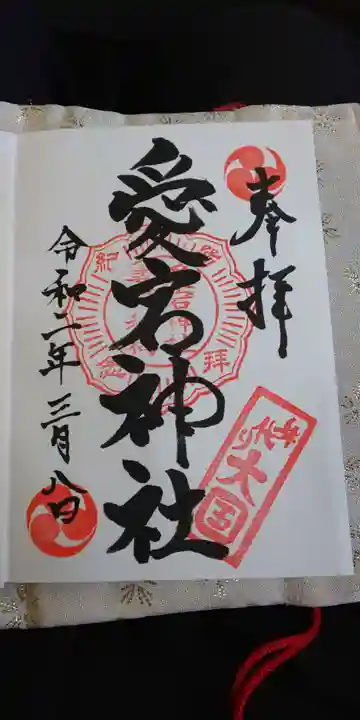 奉拝
愛宕神社
令和二年三月八日
身代り
大国